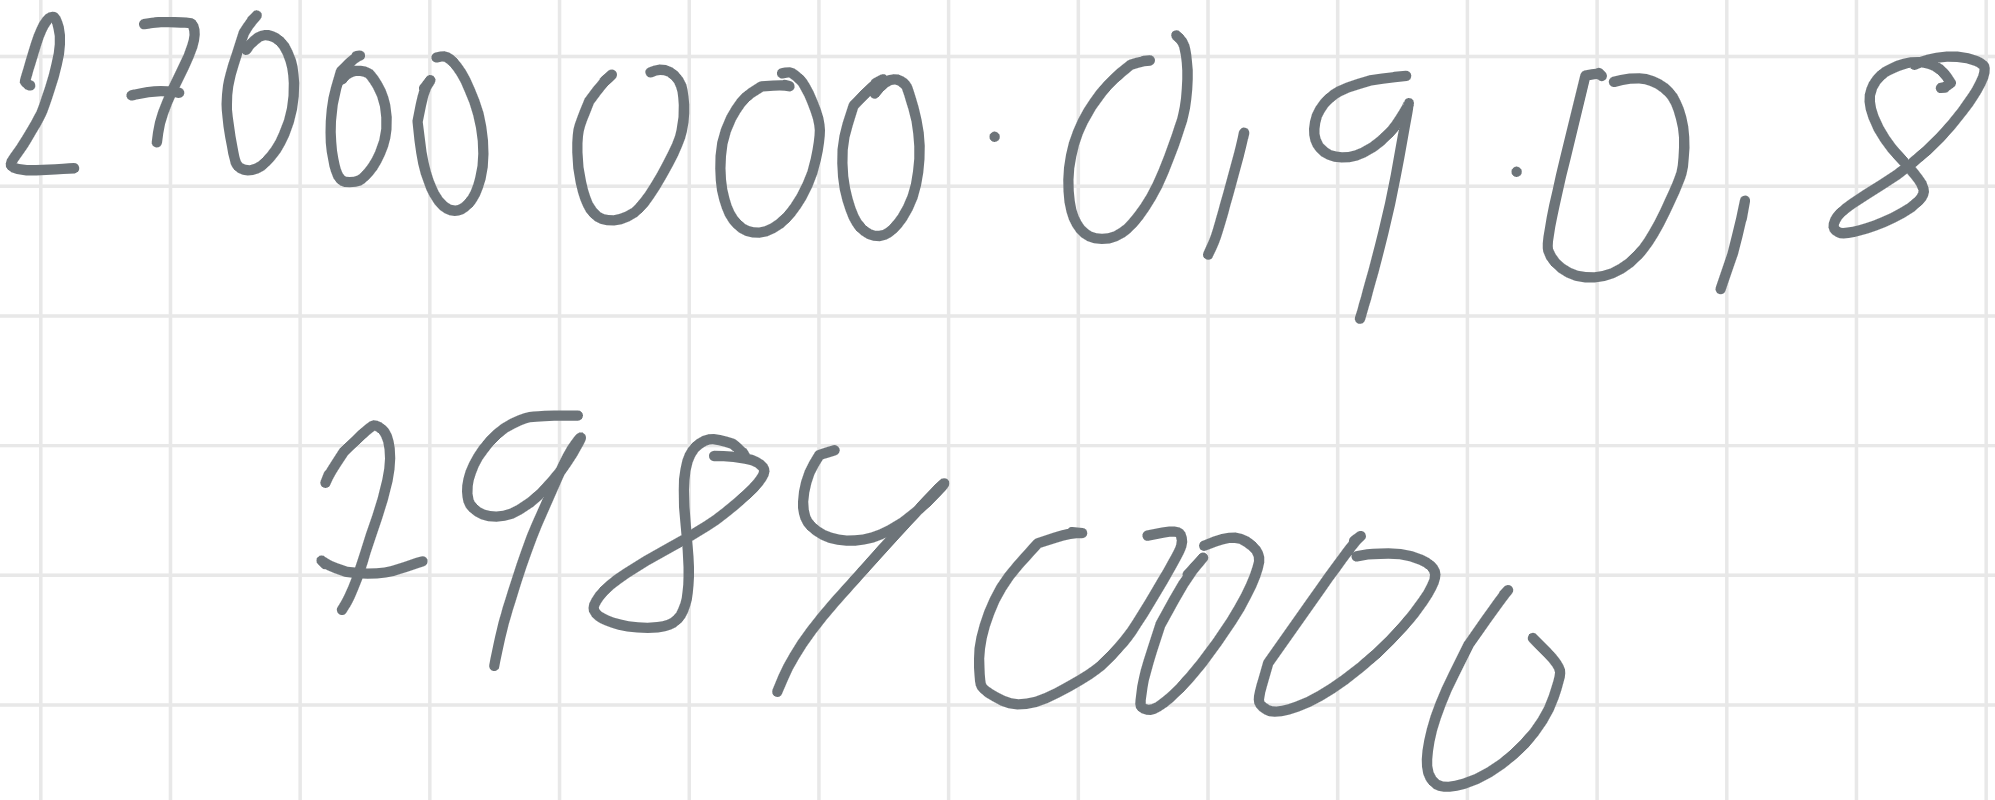 27000000 · 0,9 · 0,8
79840000